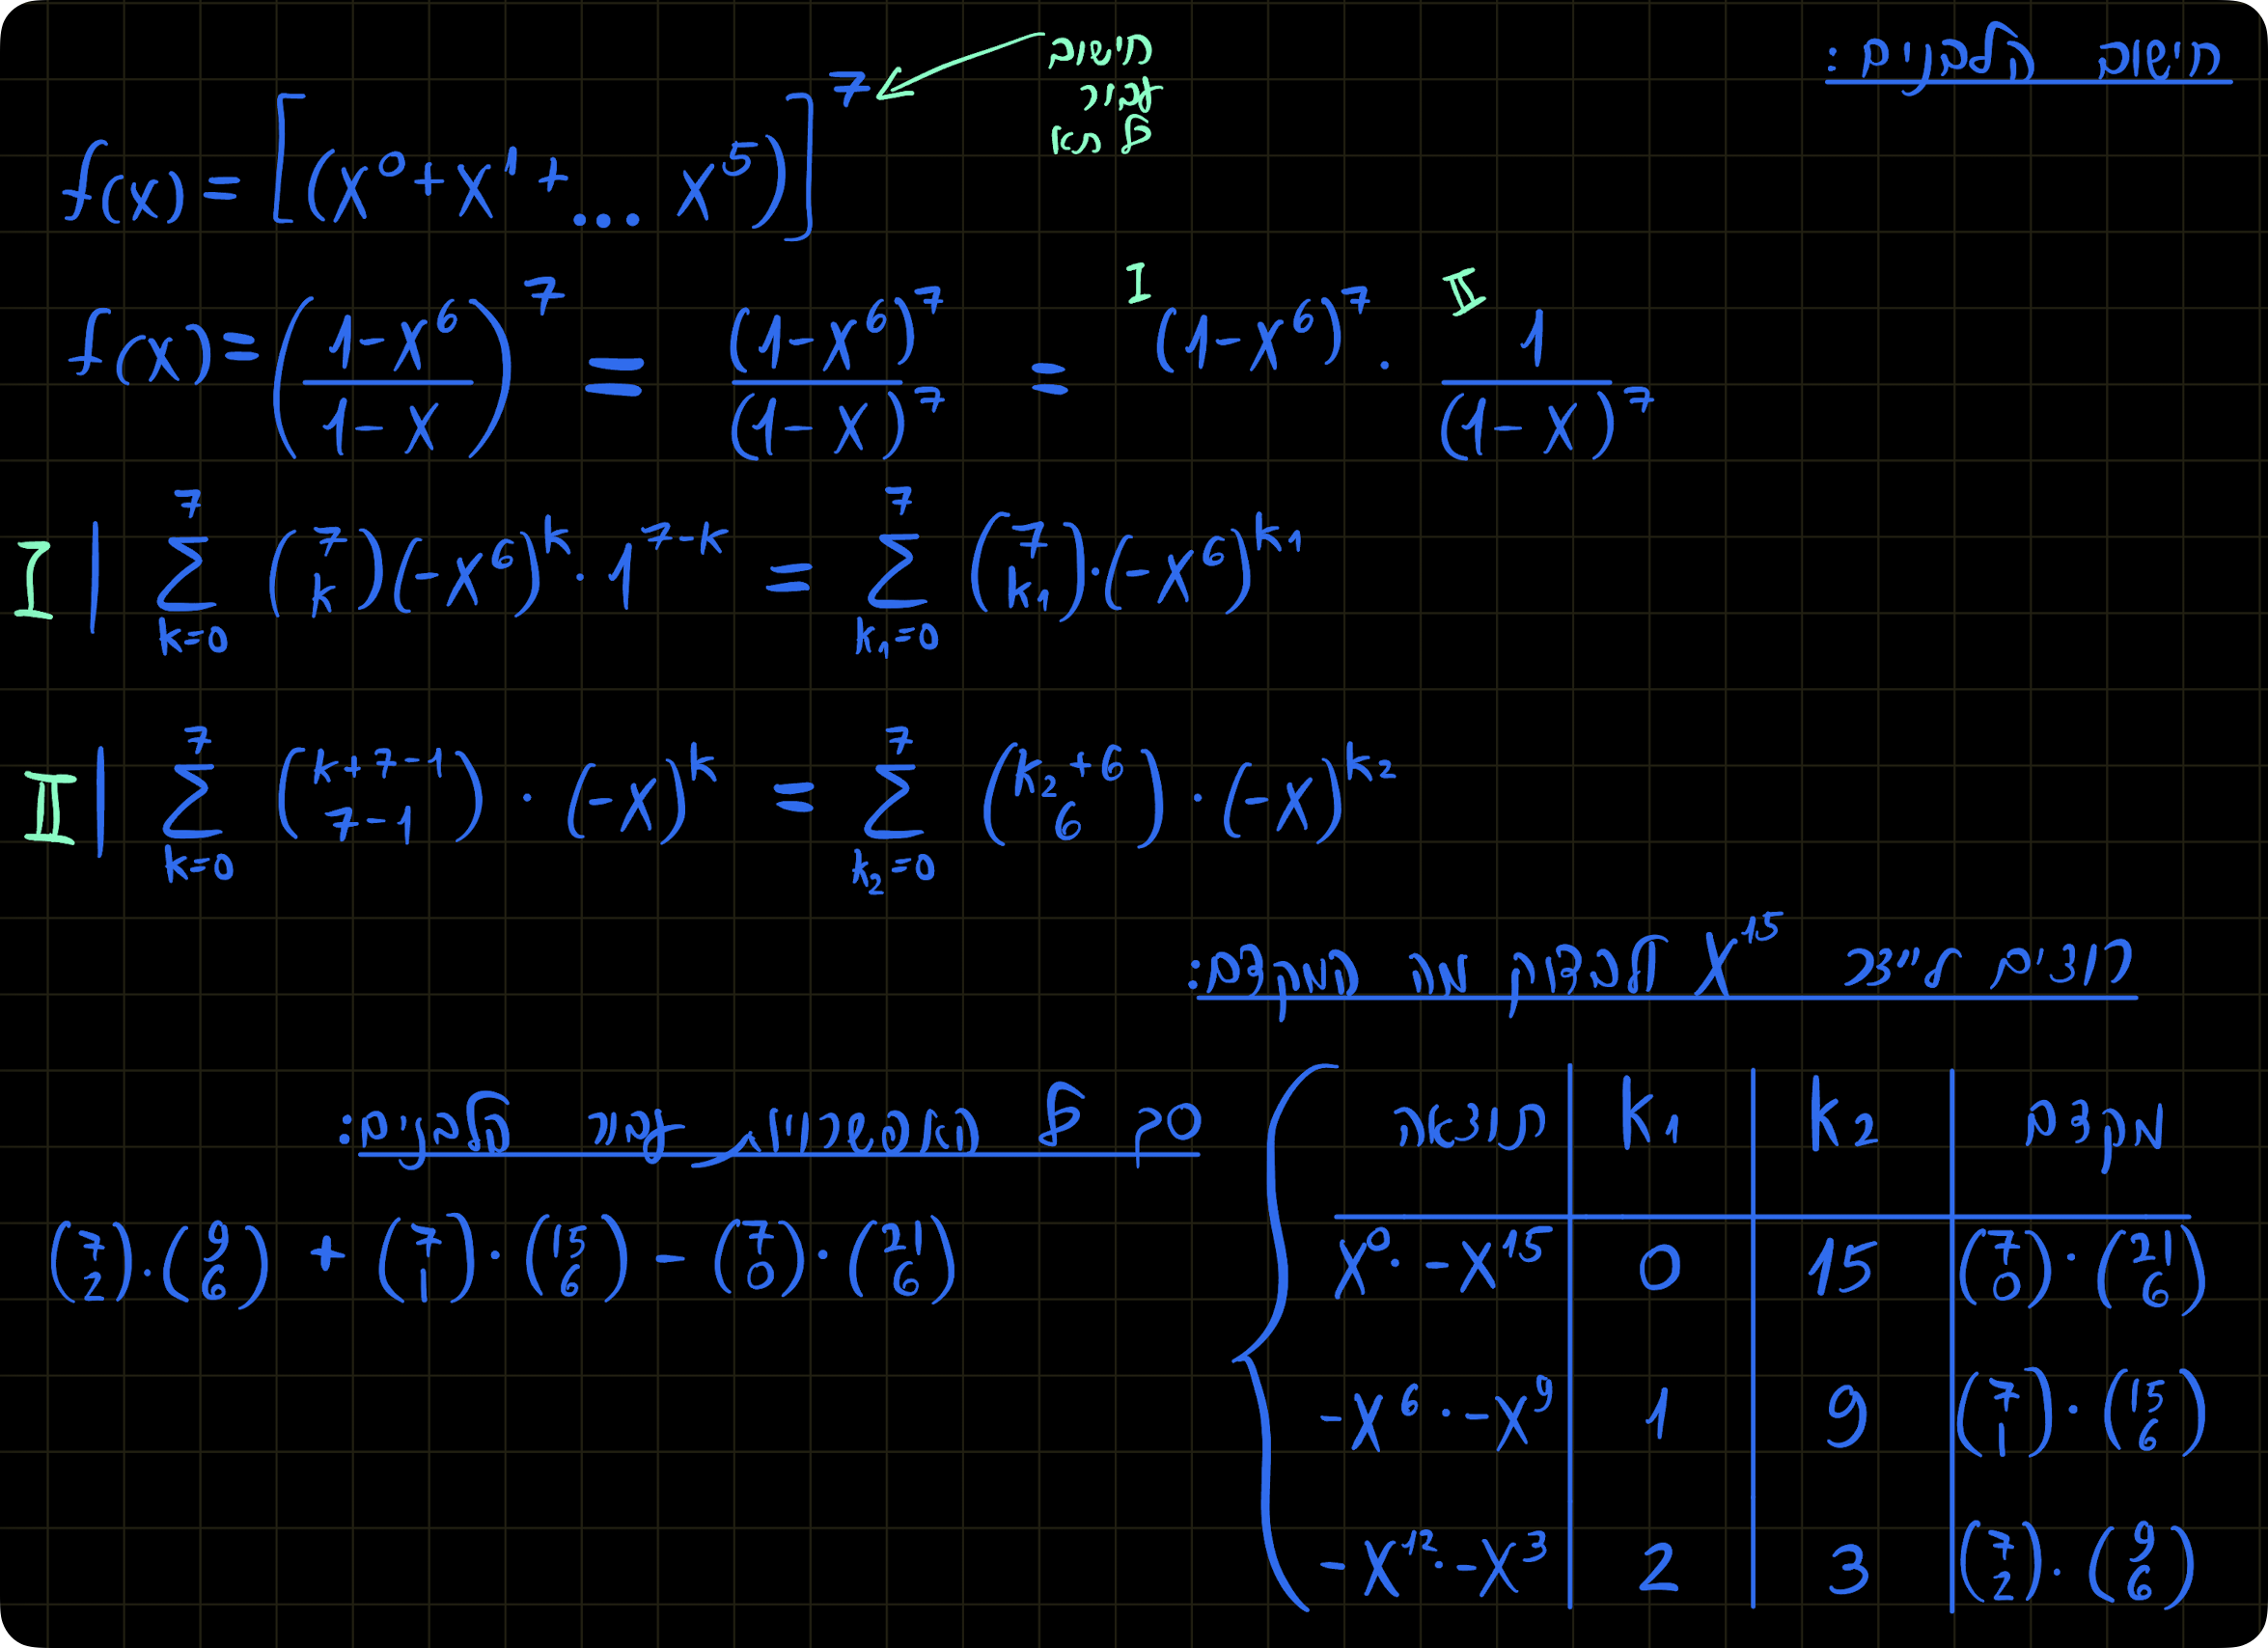 חישוב הלבנים:
חישוב
עבור
כל תא
f(x) = [(x⁰+x¹+... x⁵)]⁷
f(x) = ((1-x⁶)/(1-x))⁷ = (1-x⁶)⁷/(1-x)⁷ = (1-x⁶)⁷ · 1/(1-x)⁷
I II
I | Σ_{k=0}^{7} (7 k)(-x⁶)^k · 1^{7-k} = Σ_{k₁=0}^{7} (7 k₁)·(-x⁶)^{k₁}
II | Σ_{k=0}^{7} (k+7-1 7-1) · (-x)^k = Σ_{k₂=0}^{7} (k₂+6 6) · (-x)^{k₂}
רוצים לייצר x¹⁵ ולבדוק את המקדם:
תוצאה | k₁ | k₂ | מקדם
x⁰· -x¹⁵ | 0 | 15 | (7 0) · (21 6)
-x⁶ · -x⁹ | 1 | 9 | (7 1) · (15 6)
-x¹² · -x³ | 2 | 3 | (7 2) · (9 6)
סהכ כל האפשרויות עבור הלבנים:
(7 2)·(9 6) + (7 1)·(15 6) - (7 0)·(21 6)